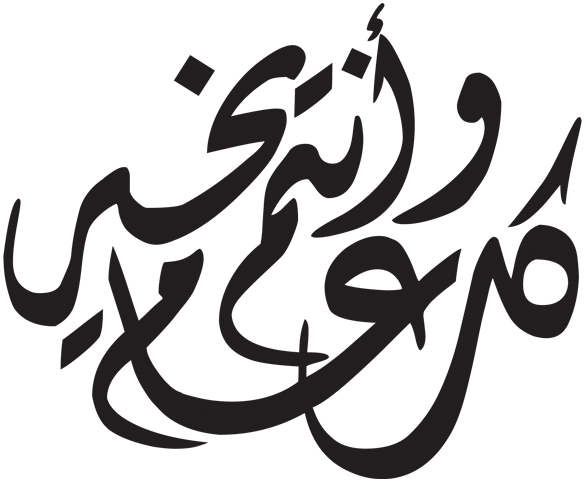 كل عام
وأنتم بخير